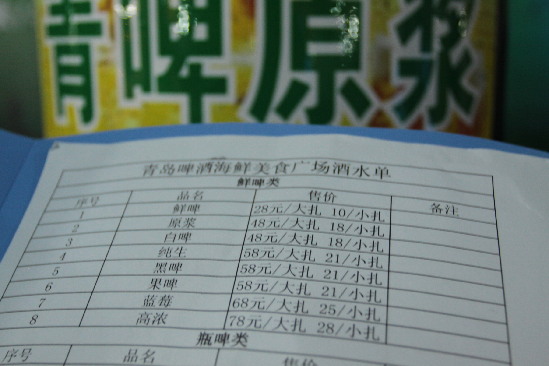 青啤原浆
青岛啤酒海鲜美食广场酒水单
鲜啤类
序号 品名 售价 备注
1 鲜啤 28元/大扎 10/小扎
2 原浆 48元/大扎 18/小扎
3 白啤 48元/大扎 18/小扎
4 纯生 58元/大扎 21/小扎
5 黑啤 58元/大扎 21/小扎
6 果啤 58元/大扎 21/小扎
7 蓝莓 68元/大扎 25/小扎
8 高浓 78元/大扎 28/小扎
瓶啤类
序号 品名 售价